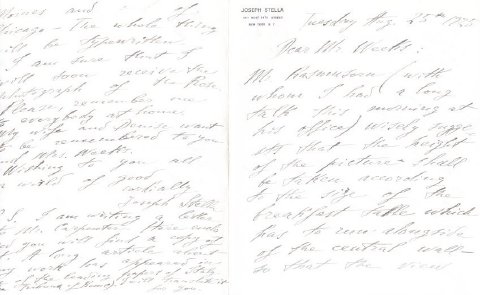 JOSEPH STELLA
NEW YORK N.Y.
Tuesday Aug. 25th 1925
Dear Mr. Weeks:
Mr. Rasmussen (with
whom I had a long
talk this morning at
his office) wisely sugge-
sts that the height
of the picture shall
be taken according
to the size of the
breakfast table which
has to run alongside
of the central wall-
so that the view
and of
Chicago - The whole thing
will be typewritten.
I am sure that I
will soon receive the
photograph of the Rose.
Please, remember me
to everybody at home
My wife and want
to be remembered to you
and Mrs. Weeks.
Wishing to you all
a world of good
cordially
Joseph Stella
P.S. I am writing a letter
to Mr. Carpenter
and you will find a copy of
it. A long article about
my work has appeared in
of the leading papers of Italy
will translate it
for you.